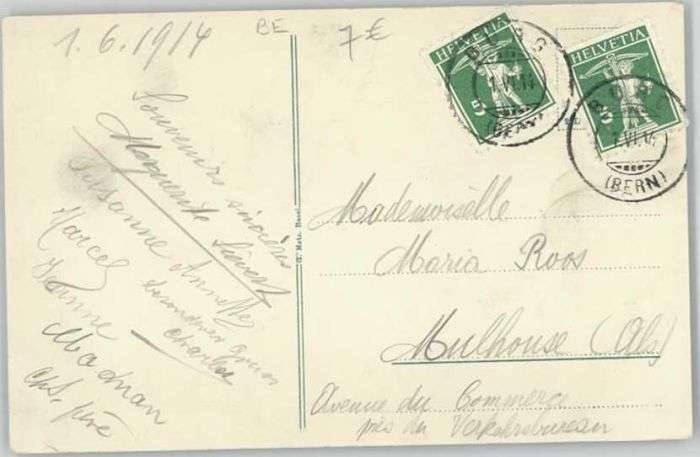 1.6.1914
BE
7€
HELVETIA
5
1.VI.14
(BERN)
HELVETIA
5
VI.14
(BERN)
Souvenirs sincères
Marguerite
Susanne Annette
Marcel
Jeanne
Charles
Ch. père
G. Metz, Basel.
Mademoiselle
Maria Roos
Mulhouse (Als)
Avenue du Commerce
près du Verkehrsbureau